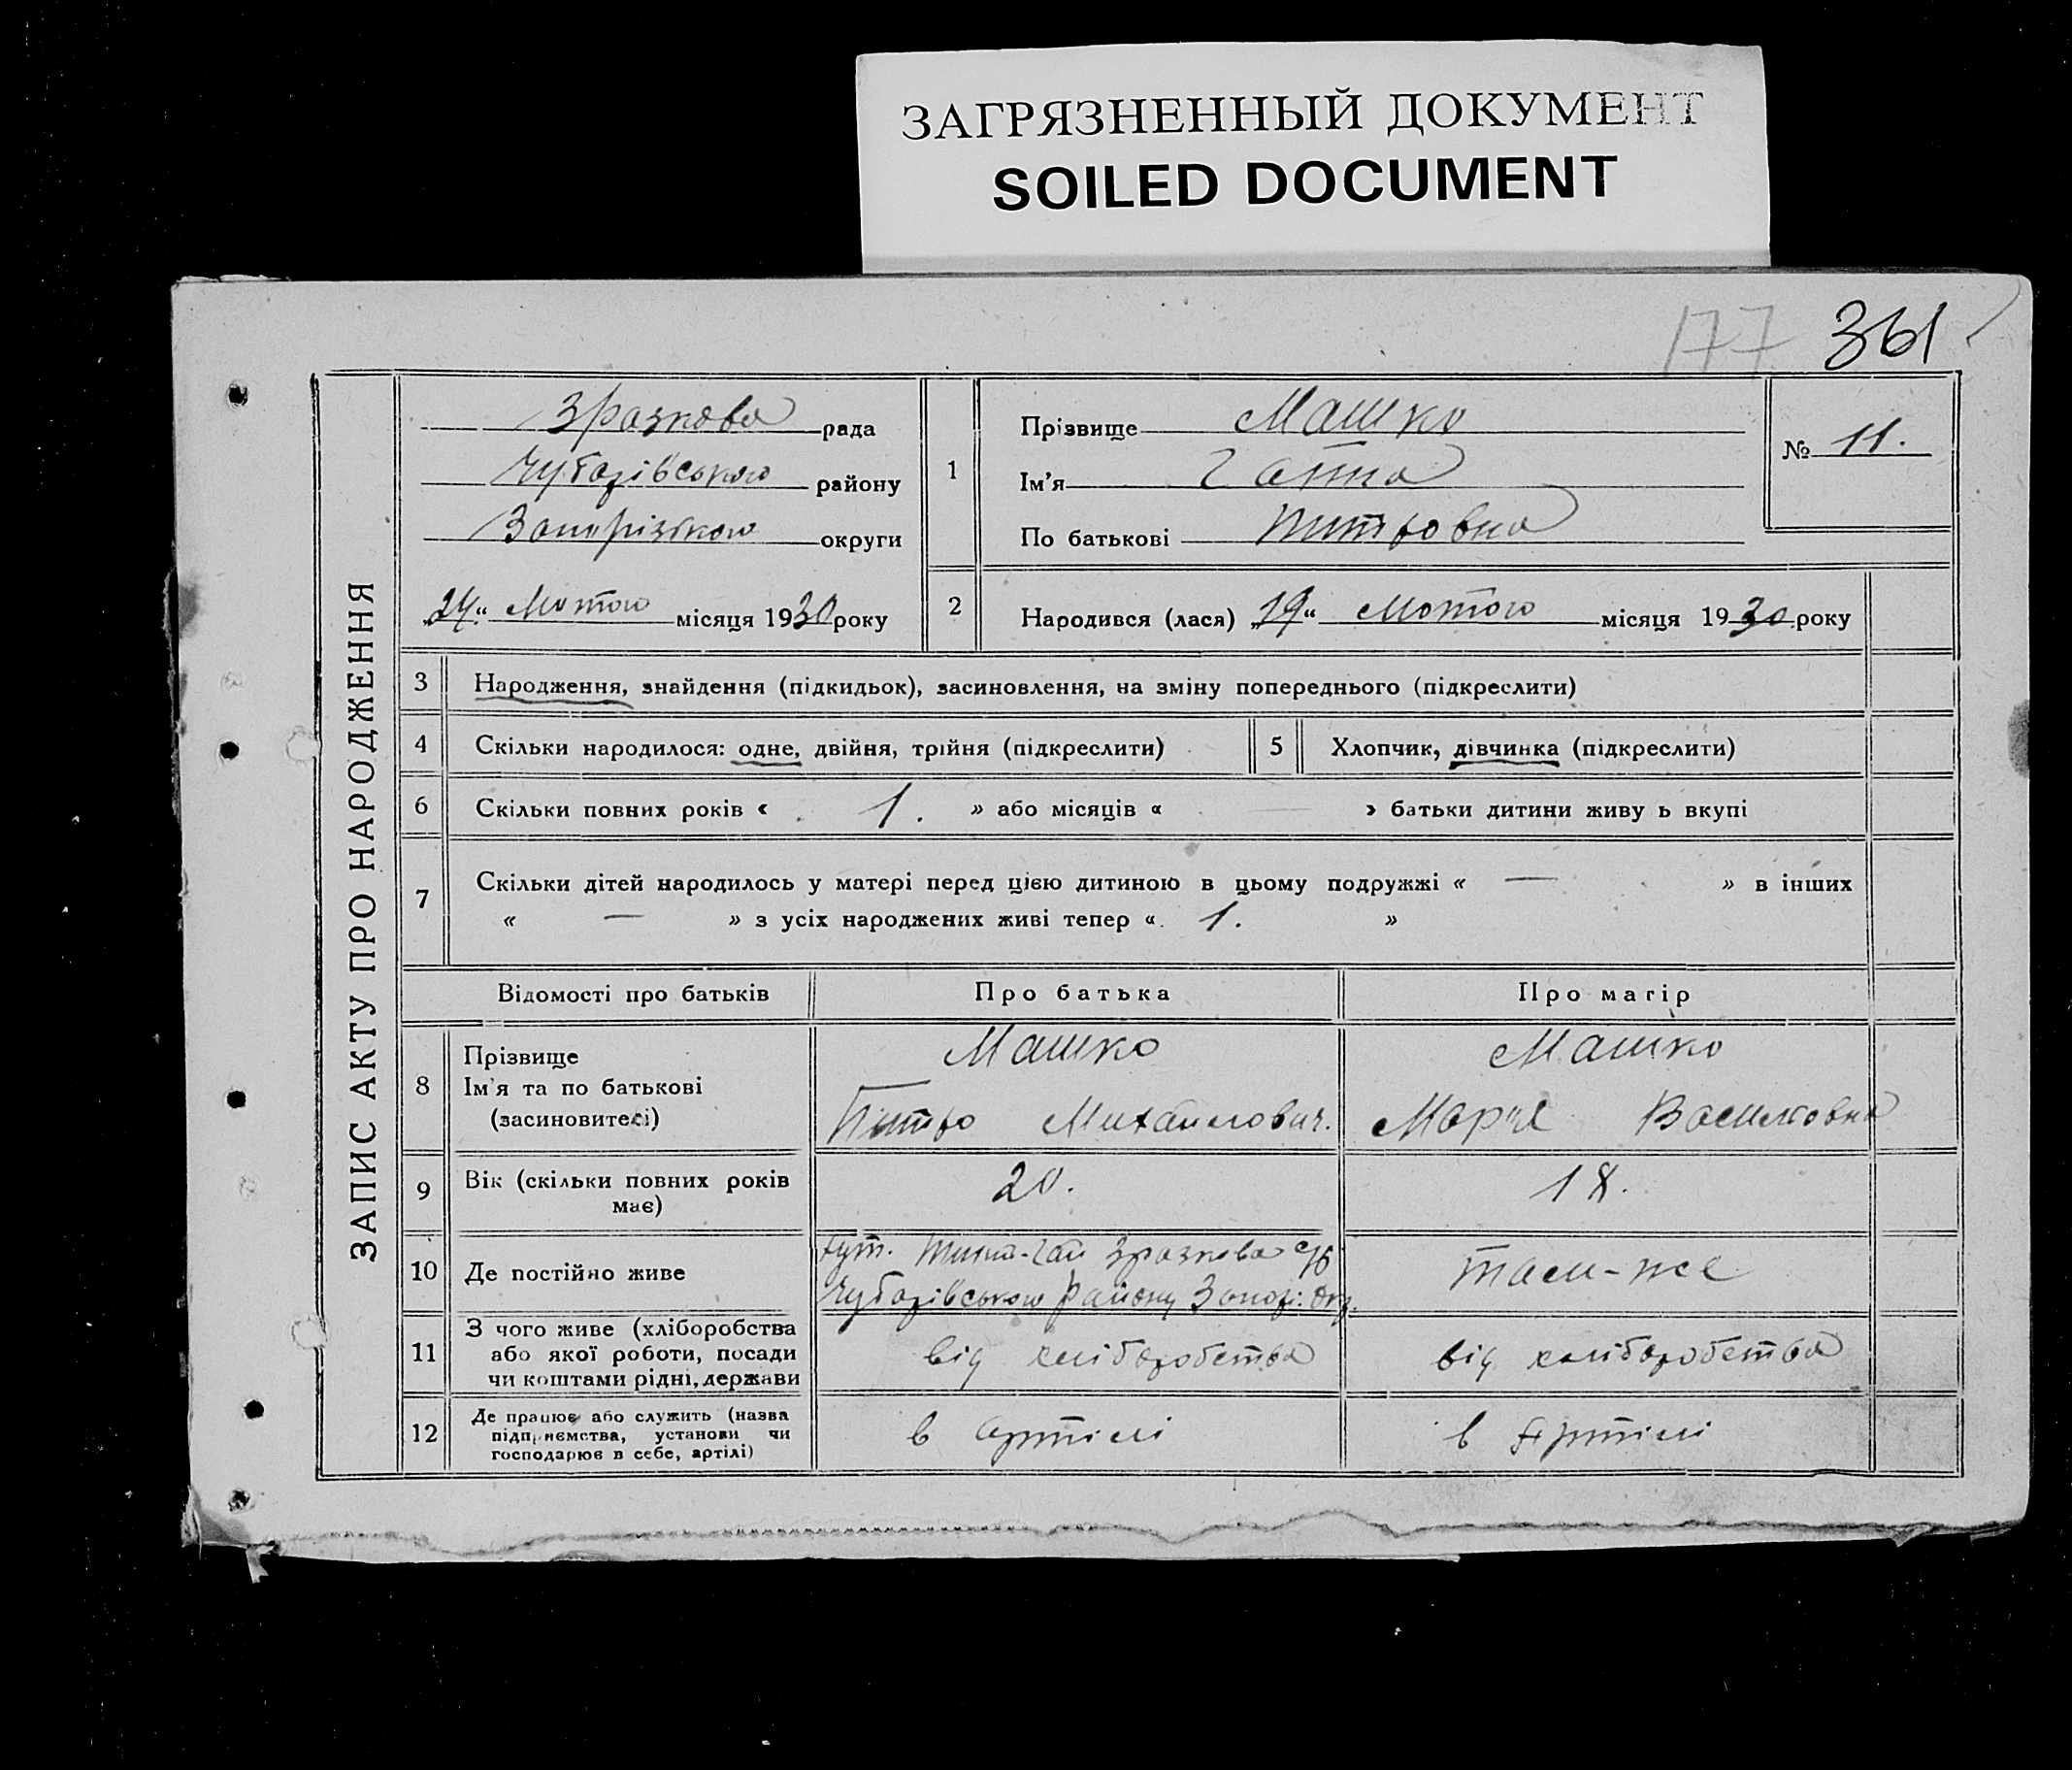 ЗАГРЯЗНЕННЫЙ ДОКУМЕНТ
SOILED DOCUMENT
177 361
ЗАПИС АКТУ ПРО НАРОДЖЕННЯ
Зразкова рада
Чубарівського району
Запорізького округи
„24“ Лютого місяця 1930 року
1
Прізвище Машко
Ім’я Ганна
По батькові Питровна
№ 11.
2 Народився (лася) „19“ Лютого місяця 1930 року
3 Народження, знайдення (підкидьок), засиновлення, на зміну попереднього (підкреслити)
4 Скільки народилося: одне, двійня, трійня (підкреслити) 5 Хлопчик, дівчинка (підкреслити)
6 Скільки повних років « 1. » або місяців « — » батьки дитини живу ь вкупі
7 Скільки дітей народилось у матері перед цією дитиною в цьому подружжі « — » в інших
« — » з усіх народжених живі тепер « 1. »
Відомості про батьків Про батька Про матір
8 Прізвище Машко Машко
Ім’я та по батькові
(засновителі) Питро Михайлович. Марія Василовна
9 Вік (скільки повних років має) 20. 18.
10 Де постійно живе хут. Гай Зразкова с/р Там-же
Чубарівського Району Запорі. Окр.
11 З чого живе (хліборобства
або якої роботи, посади від хліборобства від хліборобства
чи коштами рідні, держави
12 Де працює або служить (назва
підприємства, установи чи в артілі в Артілі
господарює в себе, артілі)